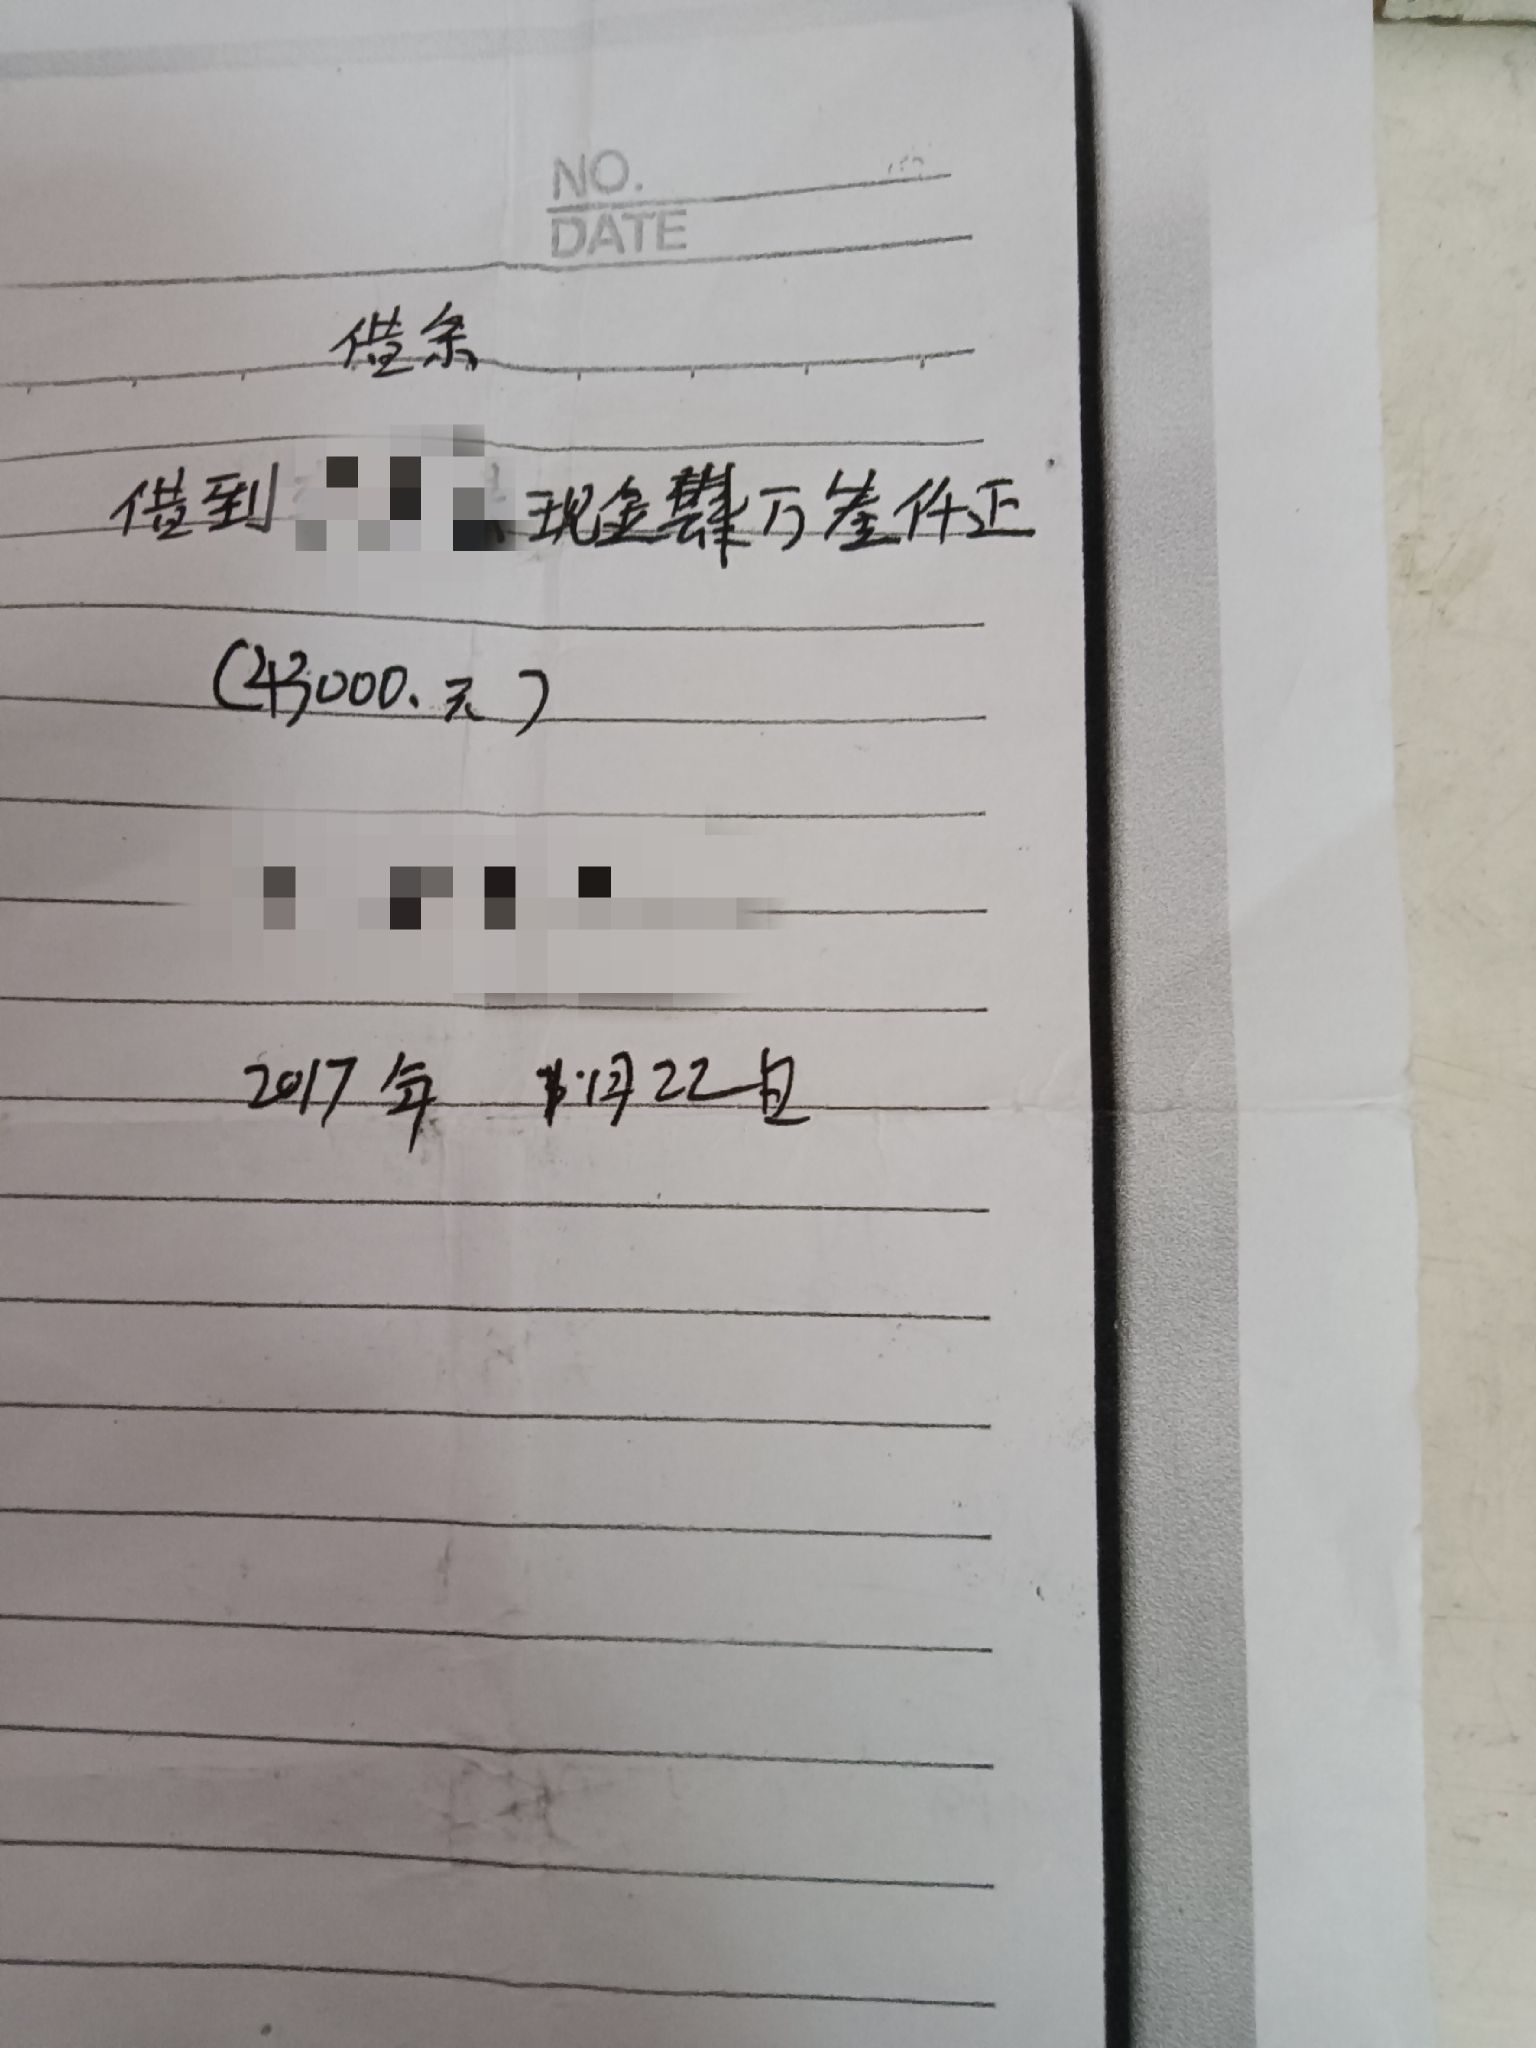 NO.
DATE
借条
借到 现金肆万叁仟正
(43000.元)
2017年 月22日